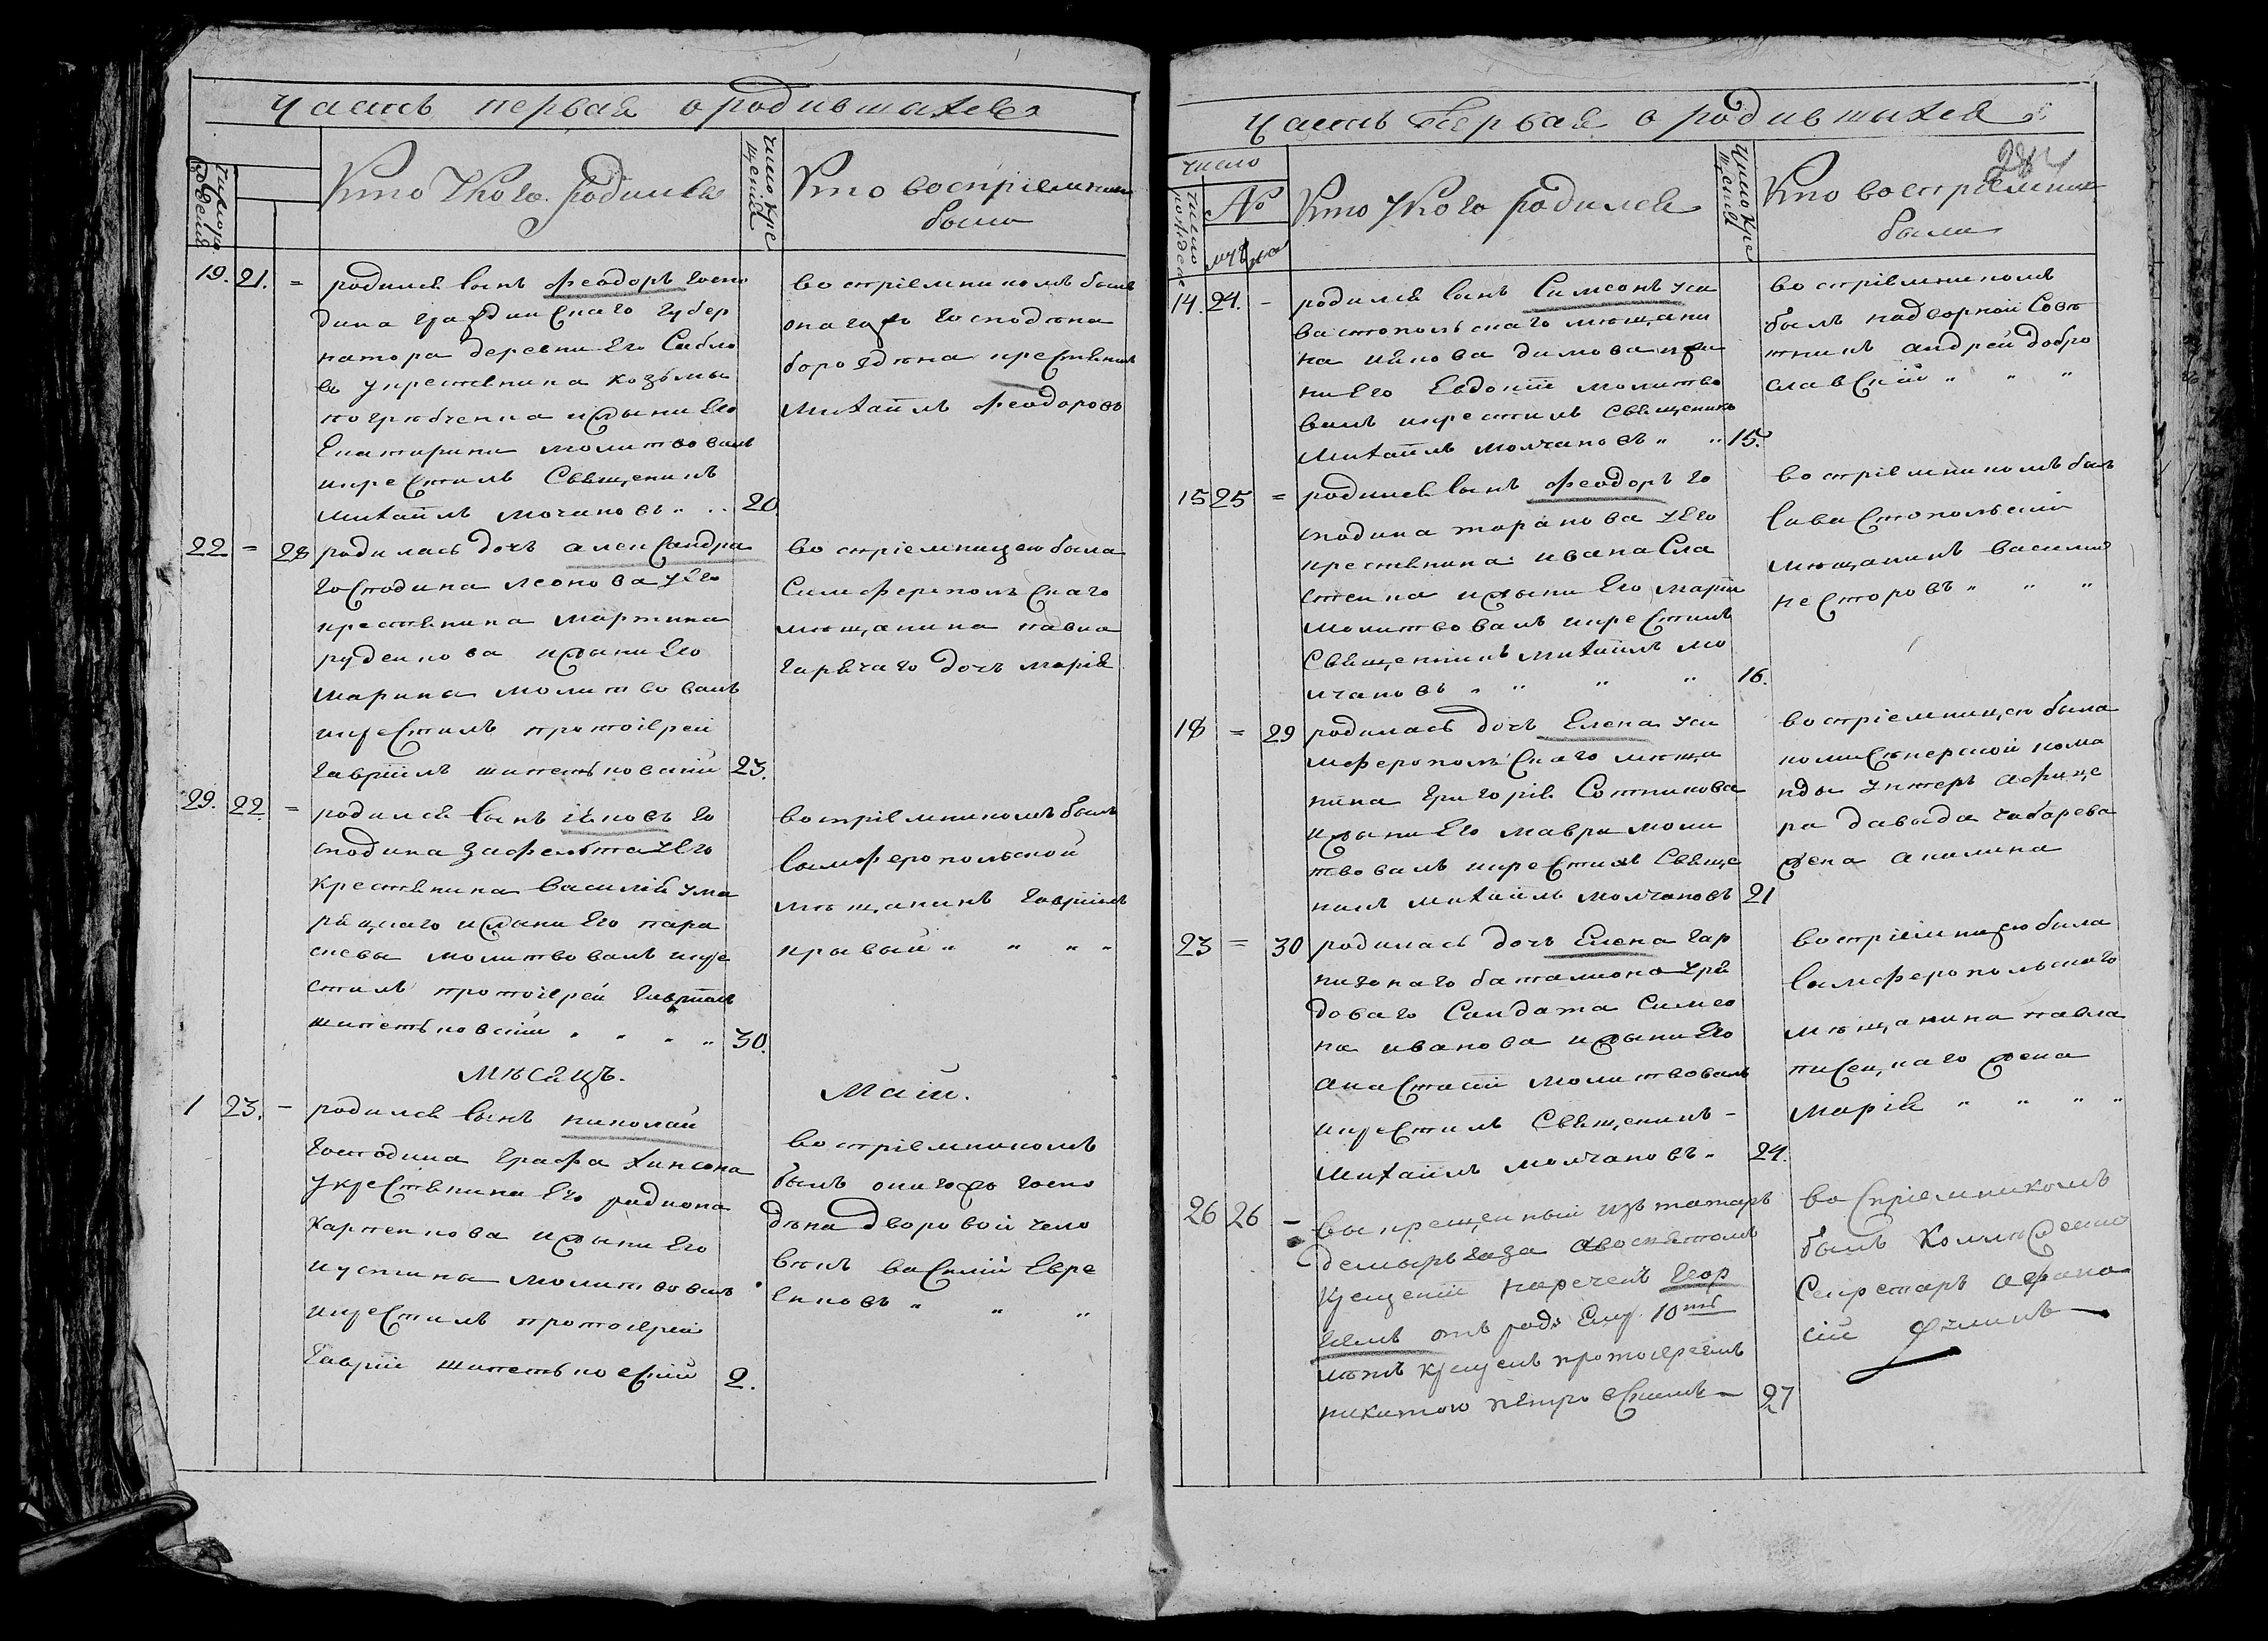 Часть первая о родившихся
число рождения
Кто У кого родился
число крещения
Кто воспріемники
были
19. 21. = родился сынъ Феодоръ госпо
дина гражданскаго губер
натора деревни Его Сабло
въ у крестянина Козьмы
погребченка и жены Его
Екатерины молитвовалъ
и крестилъ Священикъ
Михаилъ мочановъ „ „ 20.
воспріемникомъ былъ
онагожъ господина
бороздина крестянинъ
Михаилъ Феодоровъ
22 = 28 родилась дочь александра
господина леонова у Его
крестянина мартина
руденкова и жены Его
марины молитвовалъ
и крестилъ протоіерей
гавріилъ шипетьковскій 23.
воспріемницею была
Симферопольскаго
мещанина павла
горячаго дочь марія
29. 22. = родился сынъ іяковъ го
сподина у Его
крестянина василія ума
и жены Его пара
скевы молитвовалъ и кре
стилъ протоіерей гавріилъ
шипетьковскій „ „ „ „ 30.
воспріемникомъ былъ
Самферопольской
мещанинъ гавріилъ
кравый „ „ „ „
мѣсяцъ. Маій.
1 23. – родился сынъ николай
господина графа
у крестянина Его родиона
карпенкова и жены Его
иустины молитвовалъ
и крестилъ протоіерей
гавріи шипетьковскій 2.
воспріемникомъ
былъ онагожъ госпо
дина дворовой чело
векъ василій Евре
иновъ „ „ „
Часть Первая о родившихся
число
число рожденія
№
муж жен
Кто У кого родился
Число крещения
Кто воспріемники
были
14. 24. – родился сынъ Симеонъ у си
вастопольскаго мещани
на иякова димова и же
ни Его Евдокіи молитво
валъ и крестилъ священикъ
Михаилъ молчановъ „ „ 15.
воспріемникомъ
былъ надворной Сове
тникъ андрей добро
славскій „ „ „
15 25 = родился сынъ Феодоръ го
сподина таранова у Его
крестянина ивана Сла
стенка и жены Его маріи
молитвовалъ и крестилъ
Священникъ михаилъ мо
лчановъ „ „ „ „ 16.
воспріемникомъ былъ
Савастопольскій
мещанинъ василій
несторовъ „ „ „
18 = 29 родилась дочь Елена у си
мферопольскаго меща
нина григорія Сотникова
и жены Его мавры моли
твовалъ и крестилъ Свяще
никъ михаилъ молчановъ 21
воспріемницею была
кома
нды унтеръ афице
ра давыда чабарева
жена акилина
23 = 30 родилась дочь Елена гар
низонаго баталиона у ря
доваго Салдата Симео
на иванова и жены Его
анастасіи молитвовалъ
и крестилъ Священикъ –
Михаилъ молчановъ „ 24.
воспріемницею была
Самферопольскаго
мещанина павла
жена
марія „ „ „ „
26 26 – выкрещенный изъ татаръ
крещеніи нареченъ Геор
гіемъ отъ роду Ему 10ть
летъ крещенъ протоіереемъ
никитою петровскимъ — 27
воспріемникомъ
былъ
Секретарь афана
сій